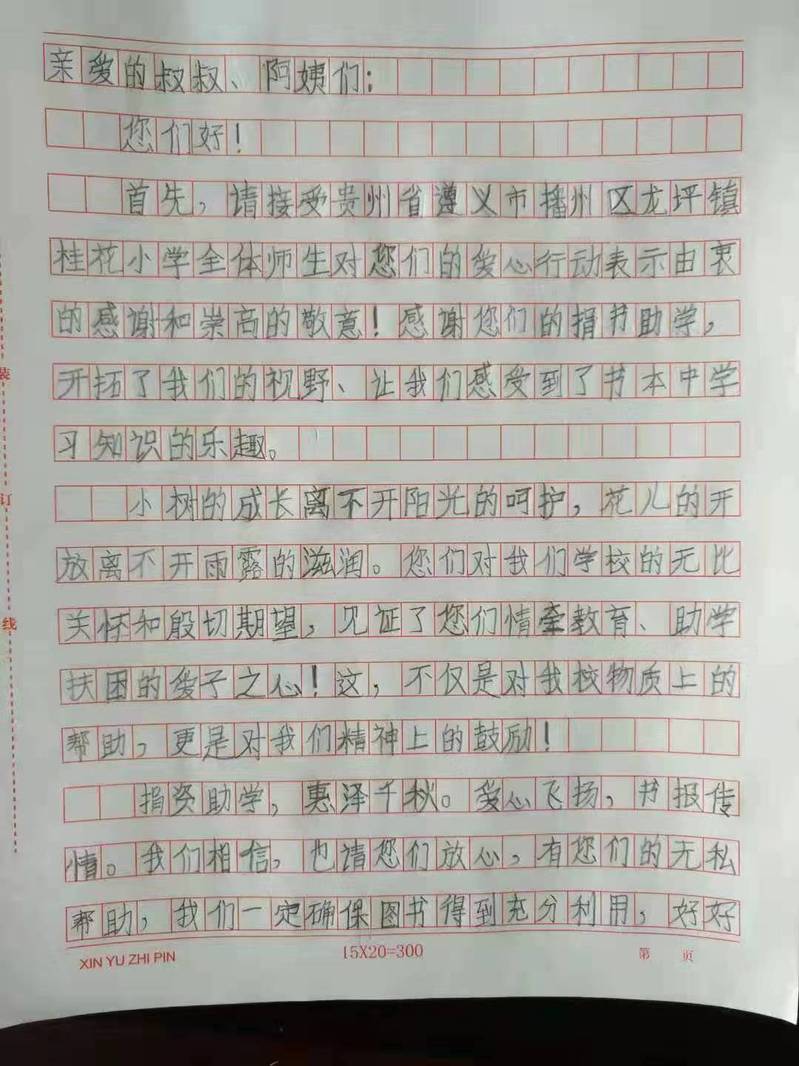 亲爱的叔叔、阿姨们:
您们好!
首先,请接受贵州省遵义市播州区龙坪镇
桂花小学全体师生对您们的爱心行动表示由衷
的感谢和崇高的敬意!感谢您们的捐书助学,
开拓了我们的视野、让我们感受到了书本中学
习知识的乐趣。
小树的成长离不开阳光的呵护,花儿的开
放离不开雨露的滋润。您们对我们学校的无比
关怀和殷切期望,见证了您们情牵教育、助学
扶困的爱子之心!这,不仅是对我校物质上的
帮助,更是对我们精神上的鼓励!
捐资助学,惠泽千秋。爱心飞扬,书报传
情。我们相信,也请您们放心,有您们的无私
帮助,我们一定确保图书得到充分利用,好好
XIN YU ZHI PIN 15X20=300 第 页
装
订
线